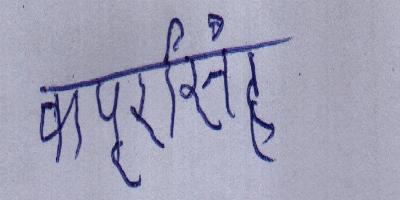 कपुरसिंह